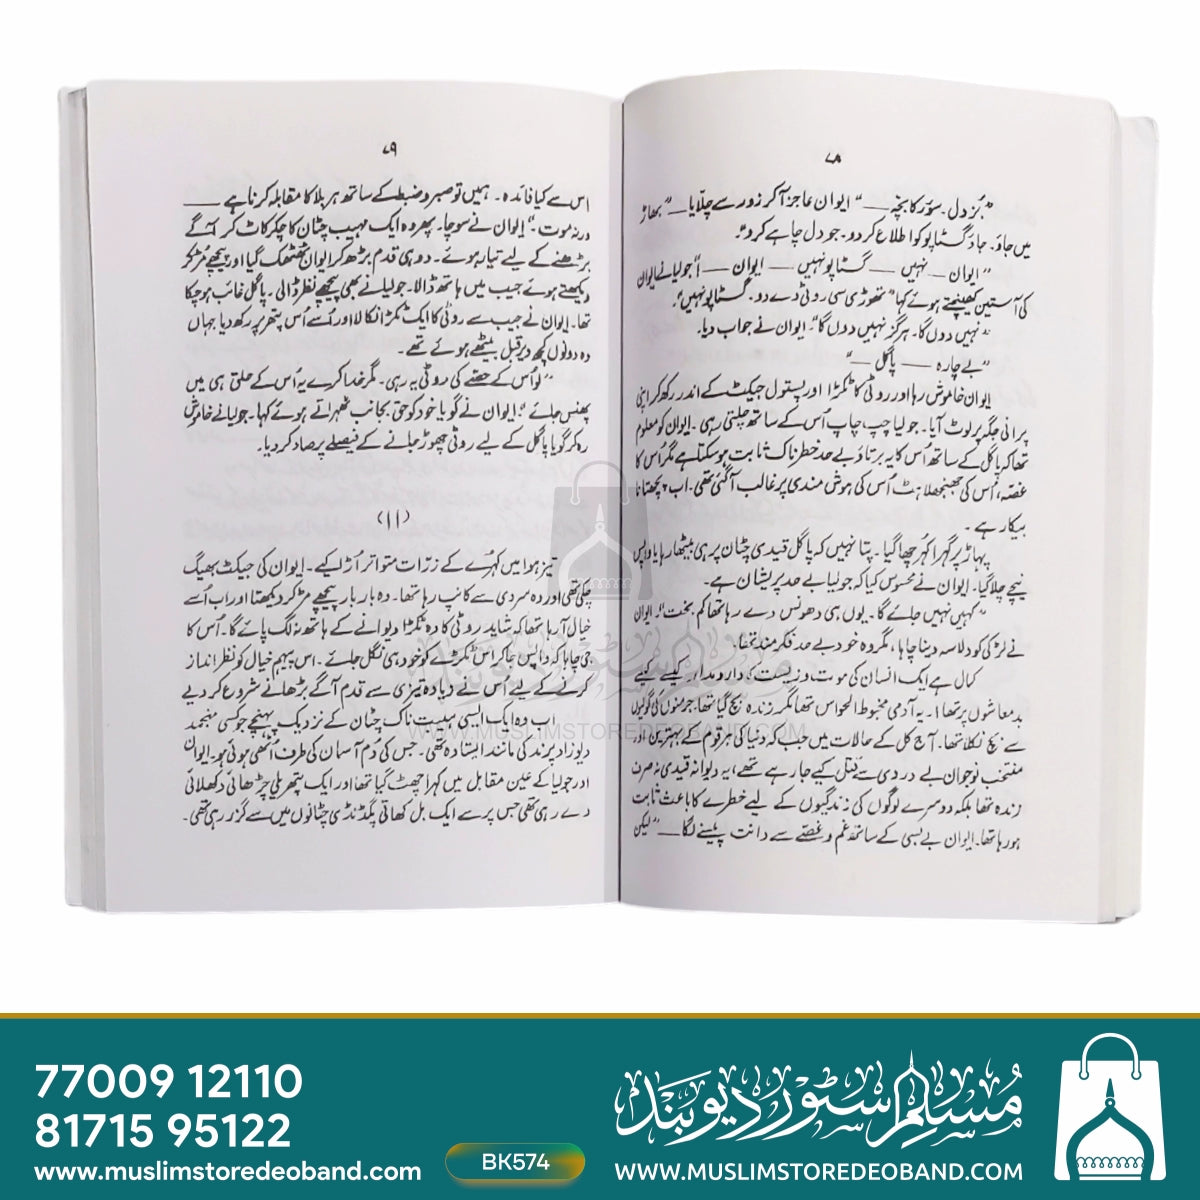 ۷۸
"بُزدل۔ سوّر کا بچّہ ــــ" ایوان عاجز آکر زور سے چلّایا ــــ "بھاڑ
میں جاؤ۔ جاؤ گسٹاپو کو اطلاع کر دو۔ جو دل چاہے کرو"۔
"ایوان ــــ نہیں ــــ گسٹاپو نہیں ــــ ایوان ــــ آ" جولیا نے ایوان
کی آستین کھینچتے ہوئے کہا "تھوڑی سی روٹی دے دو۔ گسٹاپو نہیں"۔
"نہیں دوں گا۔ ہرگز نہیں دوں گا"۔ ایوان نے جواب دیا۔
"بے چارہ ــــ پاگل ــــ"
ایوان خاموش رہا اور روٹی کا ٹکڑا اور پستول جیکٹ کے اندر رکھ کر اپنی
پرانی جگہ پر لوٹ آیا۔ جولیا چپ چاپ اُس کے ساتھ چلتی رہی۔ ایوان کو معلوم
تھا کہ پاگل کے ساتھ اُس کا یہ برتاؤ بے حد خطرناک ثابت ہو سکتا ہے مگر اُس کا
غصّہ، اُس کی جھنجھلاہٹ اُس کی ہوش مندی پر غالب آگئی تھی۔ اب پچھتانا
بیکار ہے۔
پہاڑ پر گہرا کہر چھا گیا۔ پتا نہیں کہ پاگل قیدی چٹان پر ہی بیٹھا رہا یا واپس
نیچے چلا گیا۔ ایوان نے محسوس کیا کہ جولیا بے حد پریشان ہے۔
"کہیں نہیں جائے گا۔ یوں ہی دھونس دے رہا تھا کم بخت"۔ ایوان
نے لڑکی کو دلاسہ دینا چاہا، مگر وہ خود بے حد فکرمند تھا۔
کمال ہے ایک انسان کی موت و زیست کا دارومدار کیسے کیسے
بدمعاشوں پر تھا! ۔ یہ آدمی مخبوط الحواس تھا مگر زندہ بچ گیا تھا۔ جرمنوں کی گولیوں
سے بچ نکلا تھا۔ آج کل کے حالات میں جب کہ دنیا کی ہر قوم کے بہترین اور
منتخب نوجوان بے دردی سے قتل کیے جا رہے تھے، یہ دیوانہ قیدی نہ صرف
زندہ تھا بلکہ دوسرے لوگوں کی زندگیوں کے لیے خطرے کا باعث ثابت
ہو رہا تھا۔ ایوان بے بسی کے ساتھ غم و غصّے سے دانت پیسنے لگا ــــ "لیکن
۷۹
اس سے کیا فائدہ۔ ہمیں تو صبر و ضبط کے ساتھ ہر بلا کا مقابلہ کرنا ہے ــــ
ورنہ موت۔" ایوان نے سوچا۔ پھر وہ ایک مہیب چٹان کا چکر کاٹ کر آگے
بڑھنے کے لیے تیار ہوئے۔ دو ہی قدم بڑھ کر ایوان ٹھٹھک گیا اور پیچھے مڑ کر
دیکھتے ہوئے جیب میں ہاتھ ڈالا۔ جولیا نے بھی پیچھے نظر ڈالی۔ پاگل غائب ہو چکا
تھا۔ ایوان نے جیب سے روٹی کا ایک ٹکڑا نکالا اور اُسے اُس پتھر پر رکھ دیا جہاں
وہ دونوں کچھ دیر قبل بیٹھے ہوئے تھے۔
"لو اُس کے حصّے کی روٹی یہ رہی۔ مگر خدا کرے یہ اُس کے حلق ہی میں
پھنس جائے"۔ ایوان نے گویا خود کو حق بجانب ٹھہراتے ہوئے کہا۔ جولیا نے خاموش
رہ کر گویا پاگل کے لیے روٹی چھوڑ جانے کے فیصلے پر صاد کر دیا۔
(۱۱)
تیز ہوا میں کہرے کے ذرّات متواتر اُڑا کیے۔ ایوان کی جیکٹ بھیگ
چکی تھی اور وہ سردی سے کانپ رہا تھا۔ وہ بار بار پیچھے مڑ کر دیکھتا اور اب اُسے
خیال آ رہا تھا کہ شاید روٹی کا وہ ٹکڑا دیوانے کے ہاتھ نہ لگ پائے گا۔ اُس کا
جی چاہا کہ واپس جا کر اُس ٹکڑے کو خود ہی نگل جائے۔ اس پیہم خیال کو نظر انداز
کرنے کے لیے اُس نے زیادہ تیزی سے قدم آگے بڑھانے شروع کر دیے
اب وہ ایک ایسی ہیبت ناک چٹان کے نزدیک پہنچے جو کسی منجمد
دیوزاد پرند کی مانند ایستادہ تھی۔ جس کی دُم آسمان کی طرف اُٹھی ہوئی ہو۔ ایوان
اور جولیا کے عین مقابل میں کہرا چھٹ گیا تھا اور ایک پتھریلی چڑھائی دکھلائی
دے رہی تھی جس پر سے ایک بل کھاتی پگڈنڈی چٹانوں میں سے گزر رہی تھی۔
مسلم سٹور دیوبند
WWW.MUSLIMSTOREDEOBAND.COM
77009 12110
81715 95122
www.muslimstoredeoband.com
BK574
مسلم سٹور دیوبند
WWW.MUSLIMSTOREDEOBAND.COM